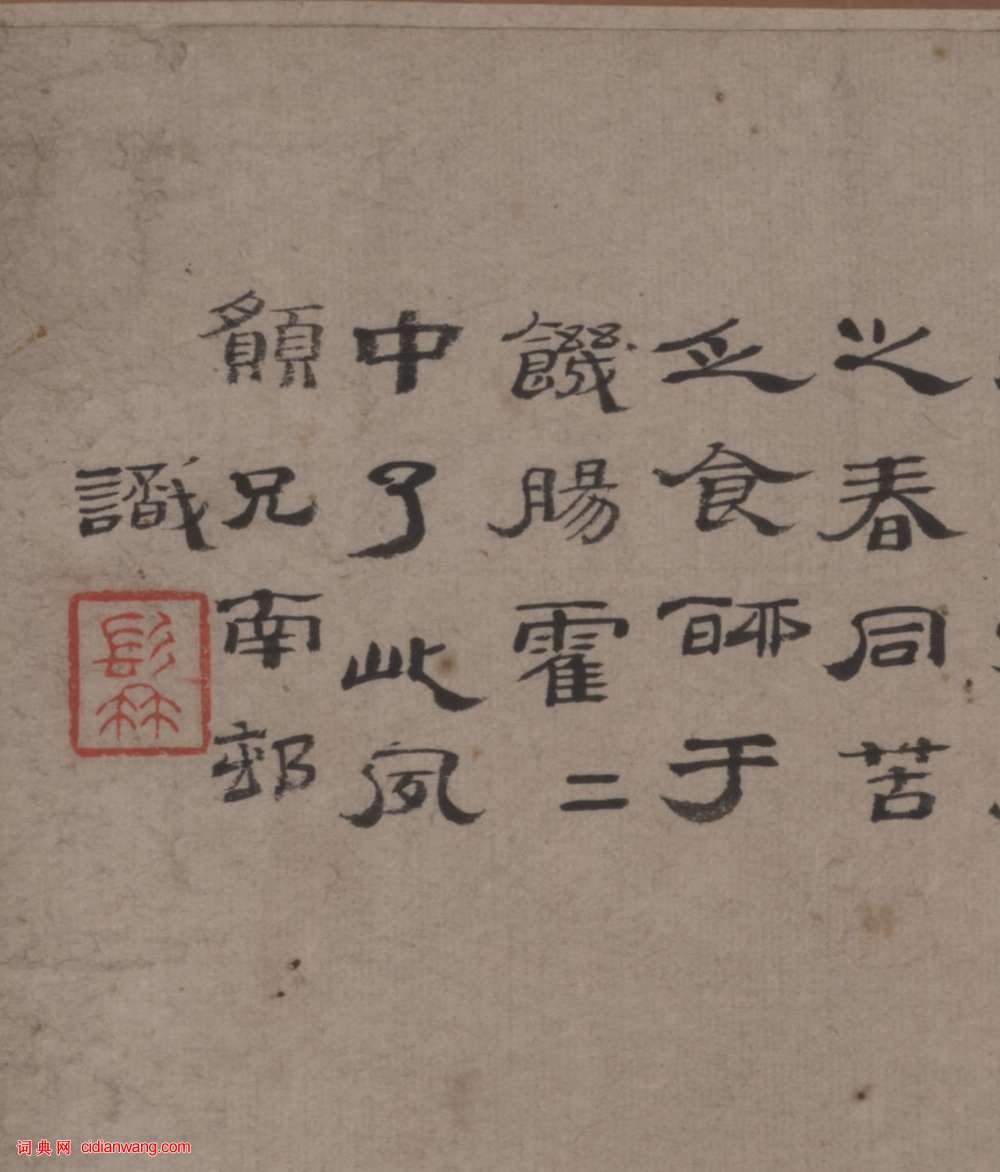 之春同苦
乏食聊于
饑腸霍二
中了此夙
願兄南邨
識
词典网 cidianwang.com